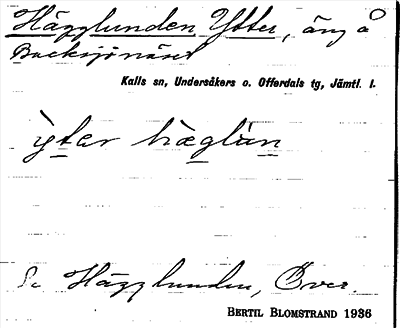 Hägglunden Ytter, äng å
Backsjönäset
Kalls sn, Undersåkers o. Offerdals tg, Jämtl. l.
ỳtər hæglùn
Se Hägglunden, Över.
BERTIL BLOMSTRAND 1936